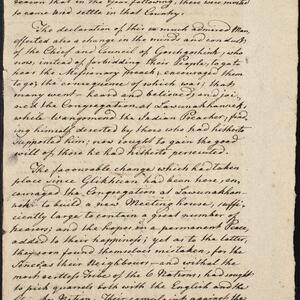 reason that in the Year following, there were invited
to come and settle in that Country.
The declaration of this so much admired Man
effected also a change in the mind and conduct
of the Chief and Council of Goschgoshink; who
now, instead of forbidding their People, to go to
hear the Missionary preach, encouraged them
to go; the consequence of which was; that
many went - heard and believed; and joi-
ned the Congregation at Lawunakhannek
while Wangomend the Indian Preacher, find-
ing himself deserted by those who had hitherto
supported him; now sought to gain the good
will of those he had hitherto persecuted.
The favourable change, which had taken
place since Glikkican had been here, en-
couraged the Congregation at Lawunakhan-
nek to build a new Meeting house, suffi-
ciently large to contain a great number of
hearers; and the hopes in a permanent Peace,
added to their happiness; yet as to the latter,
they soon found themselves mistaken, for the
Senecas their Neighbours - and withal the
most restless Tribe of the 6 Nations; had sought
to pick quarrels both with the English and the
Nation. Their